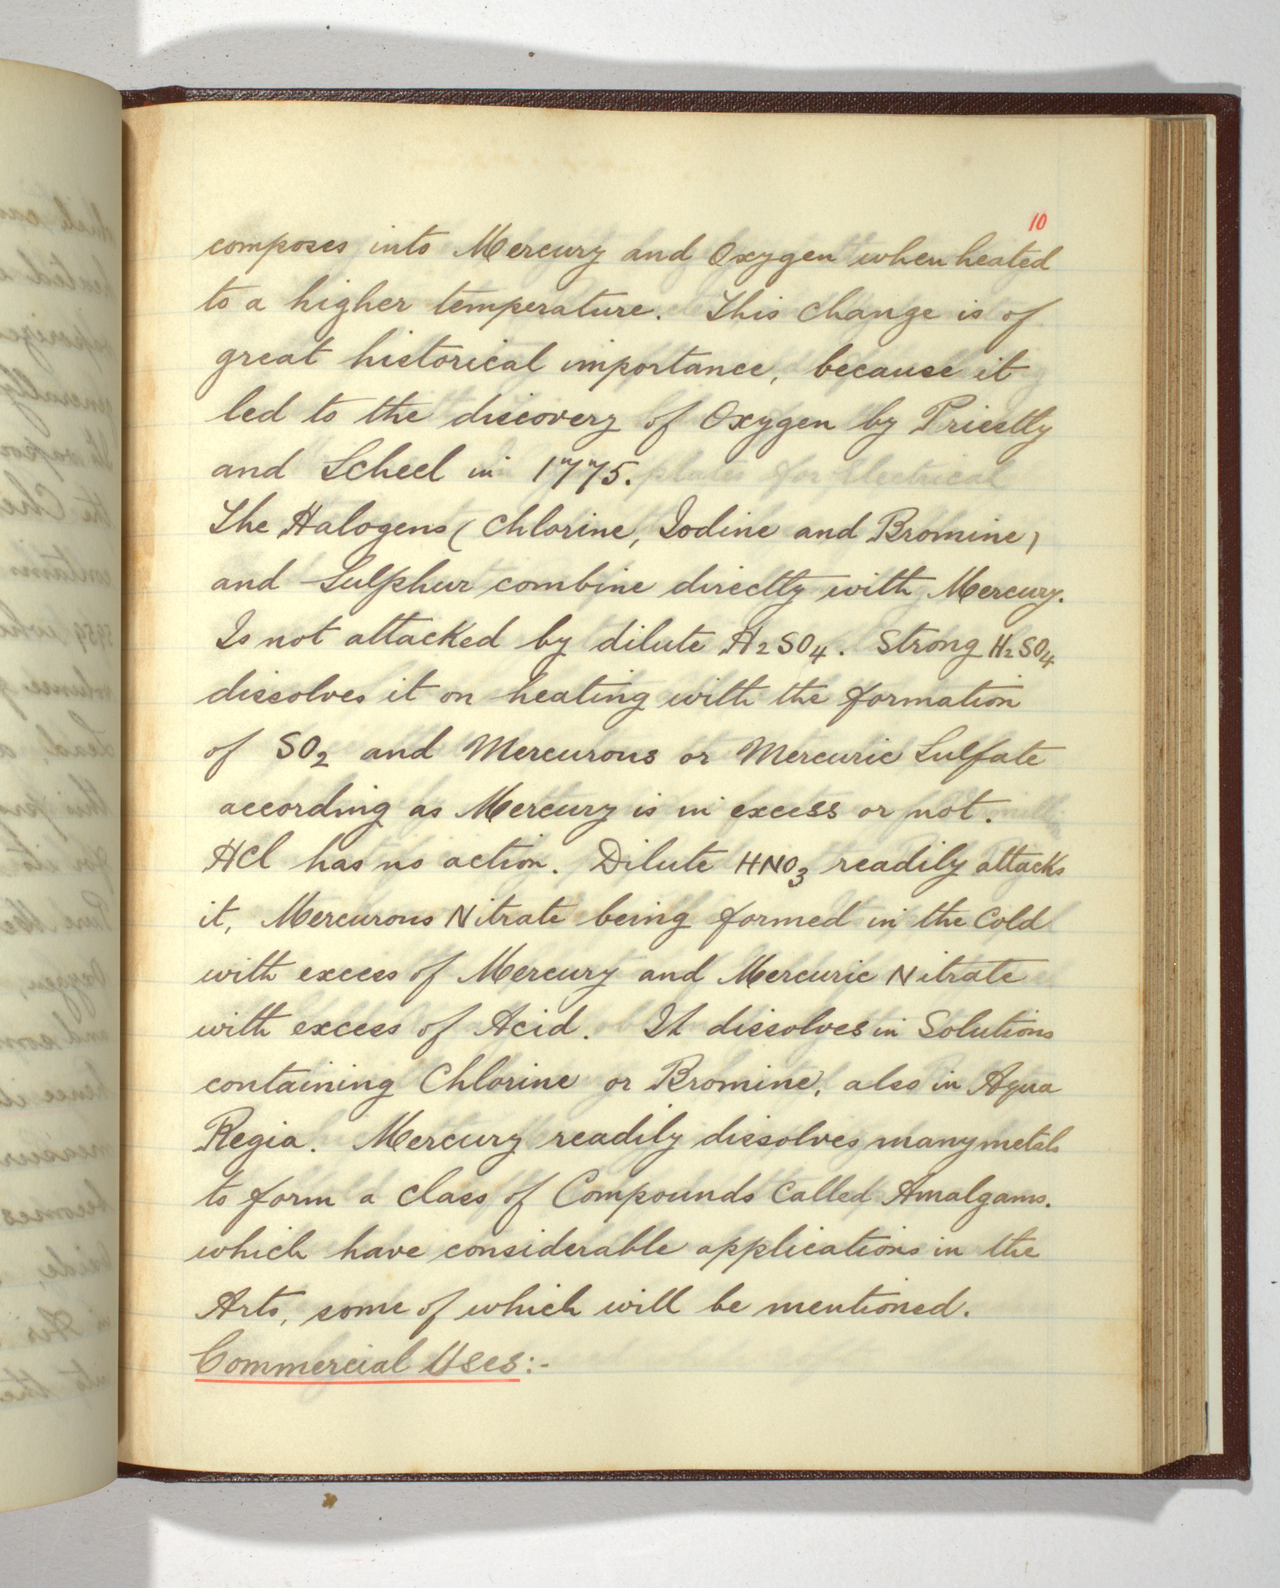 10
composes into Mercury and Oxygen when heated
to a higher temperature. This change is of
great historical importance, because it
led to the discovery of Oxygen by Priestly
and Scheel in 1775.
The Halogens (Chlorine, Iodine and Bromine)
and Sulphur combine directly with Mercury.
Is not attacked by dilute H₂SO₄. Strong H₂SO₄
dissolves it on heating with the formation
of SO₂ and Mercurous or Mercuric Sulfate
according as Mercury is in excess or not.
HCl has no action. Dilute HNO₃ readily attacks
it, Mercurous Nitrate being formed in the Cold
with excess of Mercury and Mercuric Nitrate
with excess of Acid. It dissolves in Solutions
containing Chlorine or Bromine, also in Aqua
Regia. Mercury readily dissolves many metals
to form a class of Compounds Called Amalgams.
which have considerable applications in the
Arts, some of which will be mentioned.
Commercial Uses:-